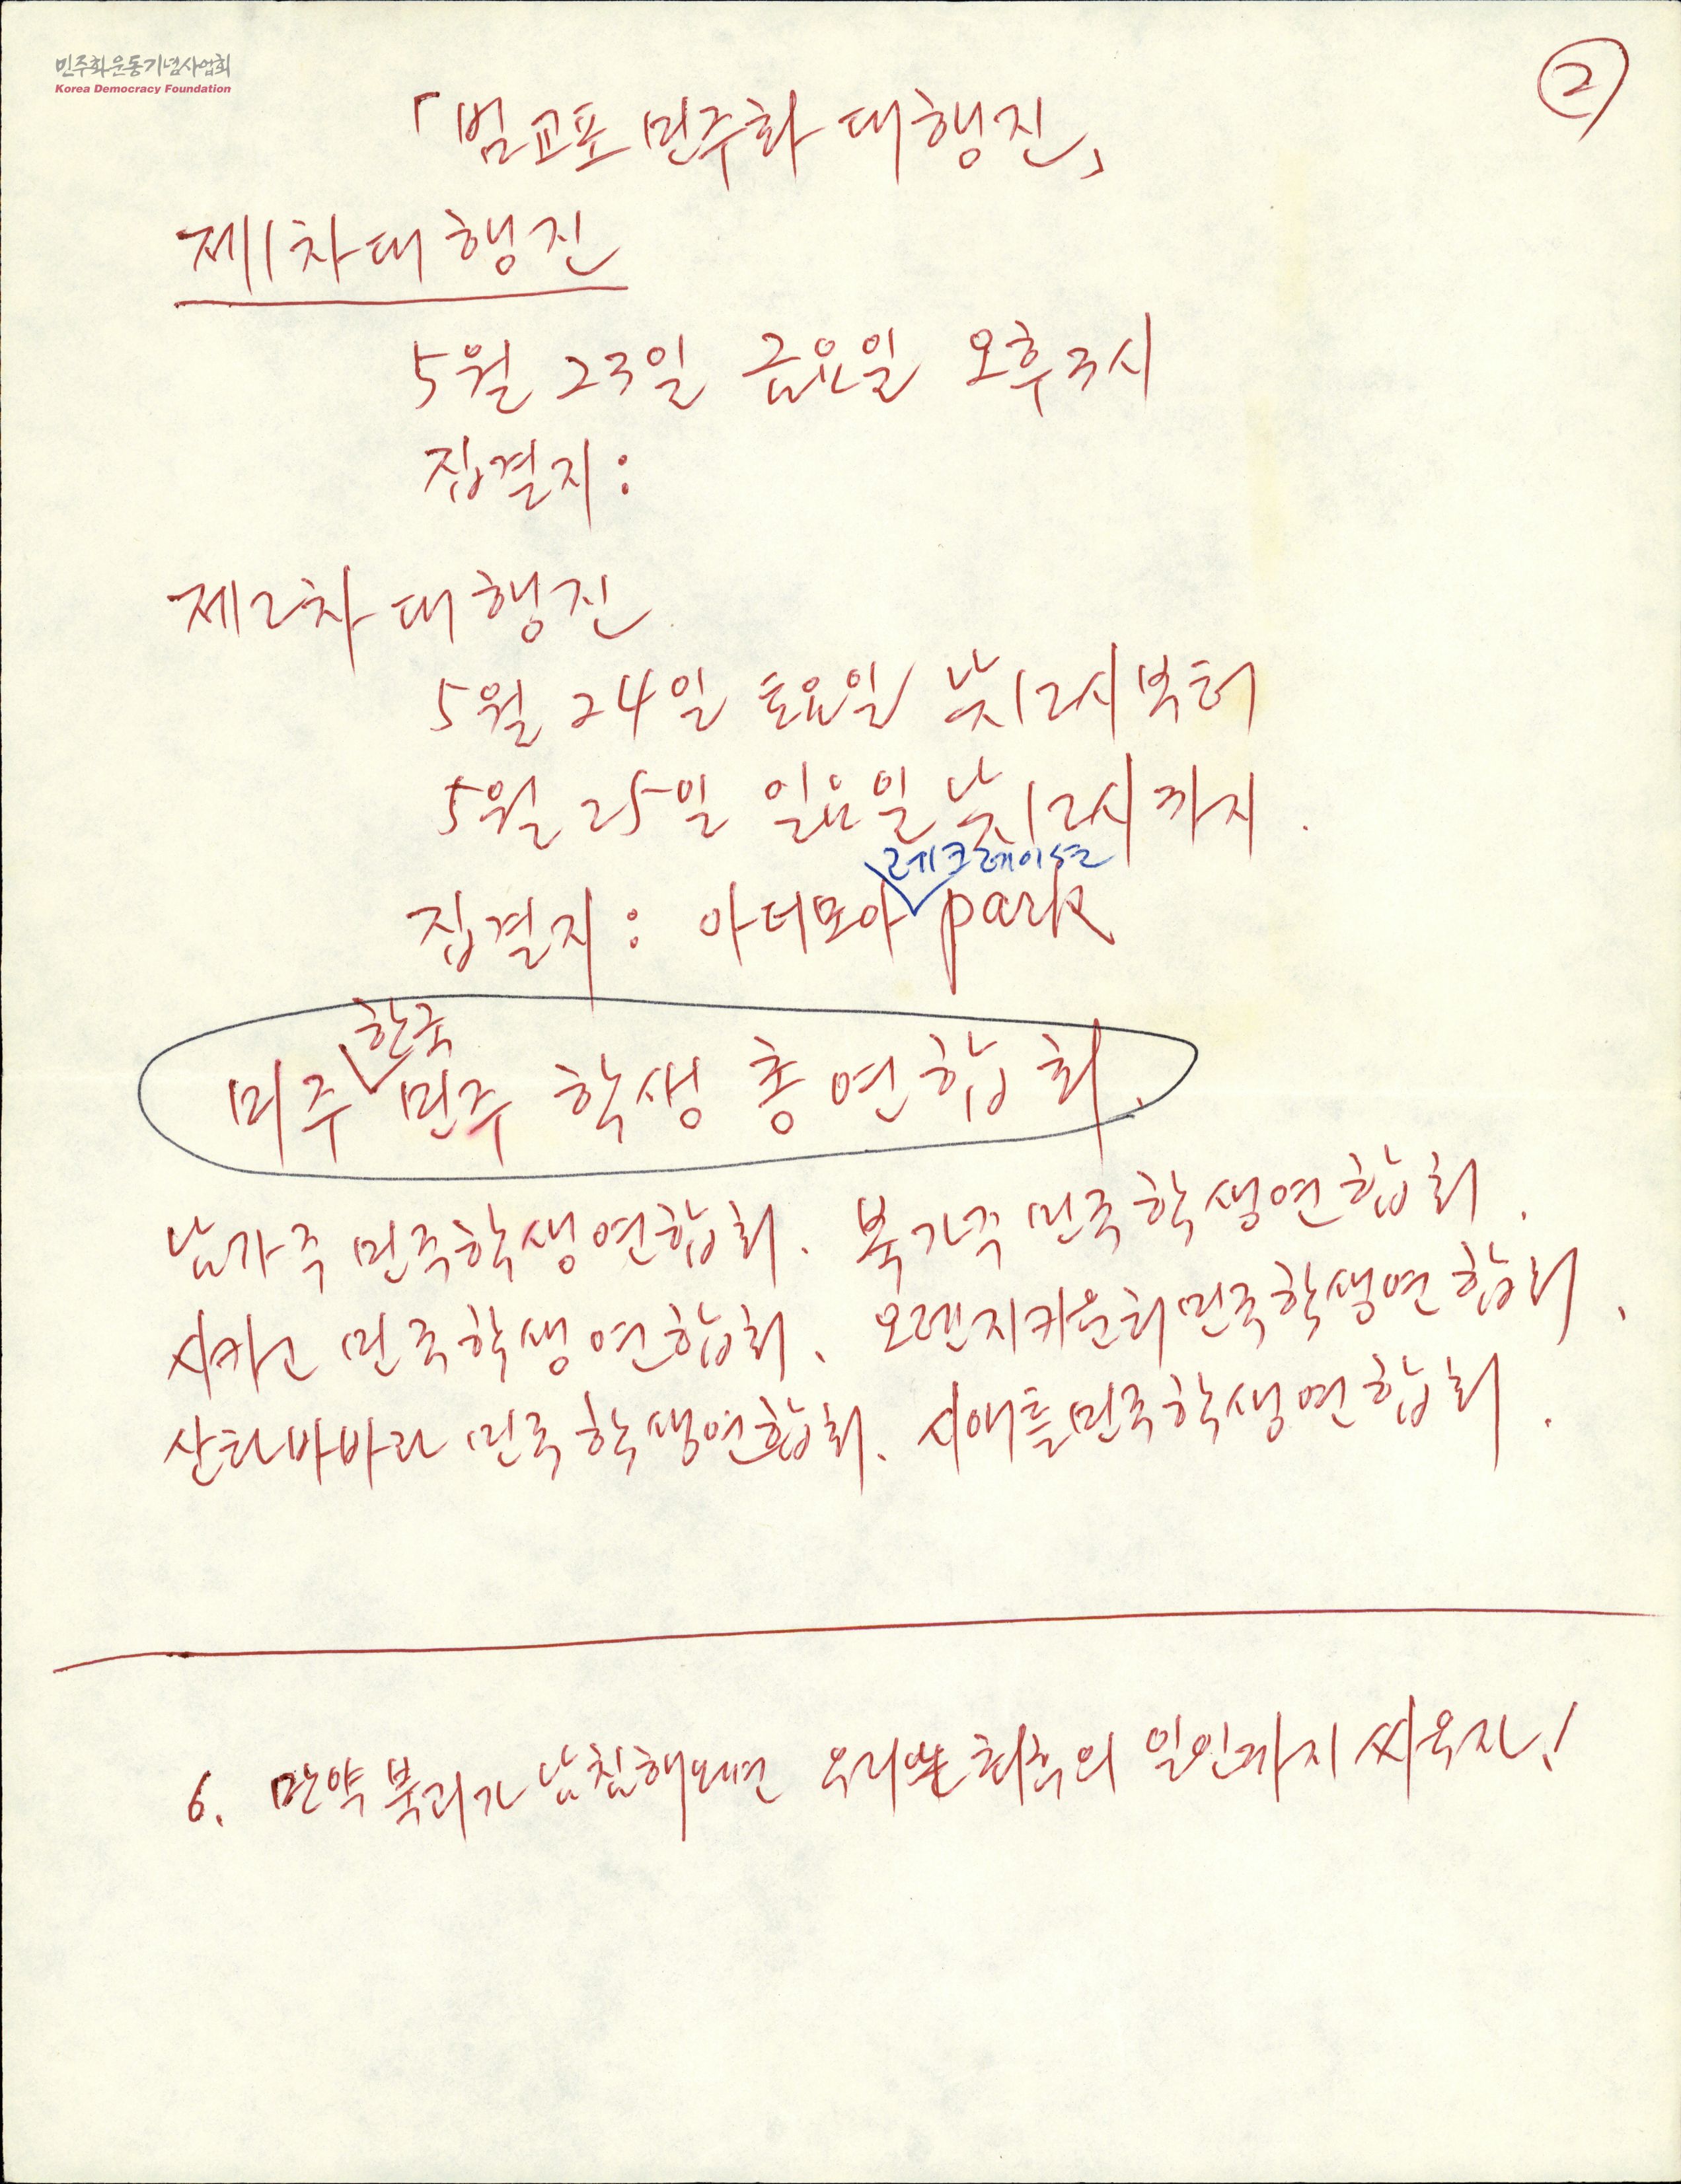 민주화운동기념사업회
Korea Democracy Foundation
②
「범교포 민주화 대행진」
제1차 대행진
5월 23일 금요일 오후 3시
집결지:
제2차 대행진
5월 24일 토요일 낮 12시부터
5월 25일 일요일 낮 12시까지.
레크레이숀
집결지: 아더모아 park
한국
미주 민주 학생 총연합회.
남가주 민주학생연합회. 북가주 민주학생연합회.
시카고 민주학생연합회. 오렌지카운티 민주학생연합회.
산타바바라 민주학생연합회. 시애틀 민주학생연합회.
6. 만약 북괴가 남침해오면 우리는 최후의 일인까지 싸우자!